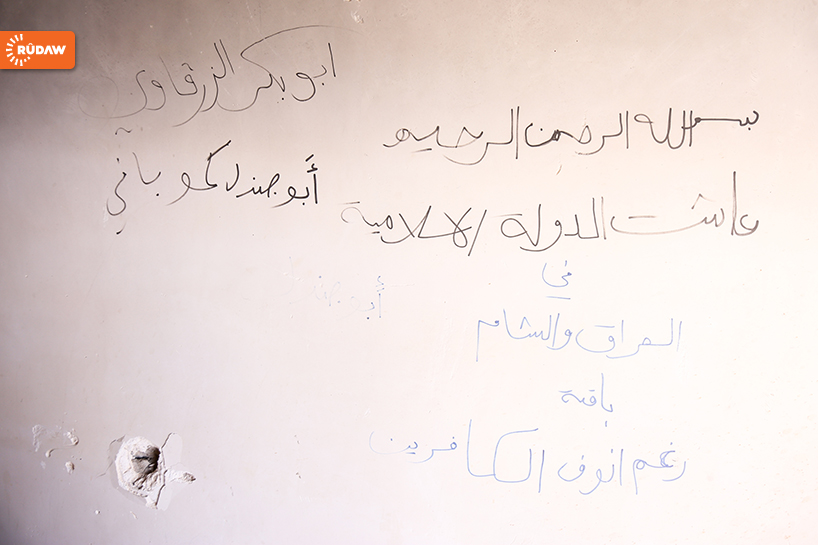 RÛDAW
ابو بكر الزرقاوي
أبو جندل كوباني
بسم الله الرحمن الرحيم
عاشت الدولة الاسلامية
في
العراق والشام
باقية
رغم انوف الكافرين